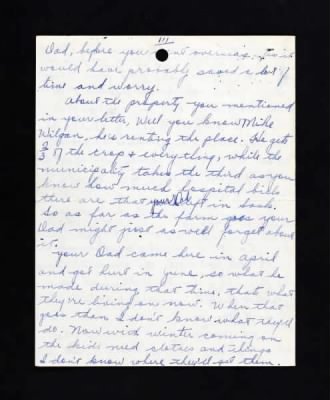 III
Dad, before you went overseas,
would have probably saved a lot of
time and worry.
About the property you mentioned
in your letter, Well you know Mike
he's renting the place. He gets
2/3 of the crop & everything, while the
municipality takes the third as you
know how much hospital bills
there are that your Dad left in Sask.
So as far as the farm goes your
Dad might just as well forget about
it.
your Dad came here in april
and got hurt in June, so what he
made during that time, that's what
they're living on now. When that
goes then I don't know what they'll
do. Now with winter coming on
the kids need clothes and things
I don't know where they'll get them.